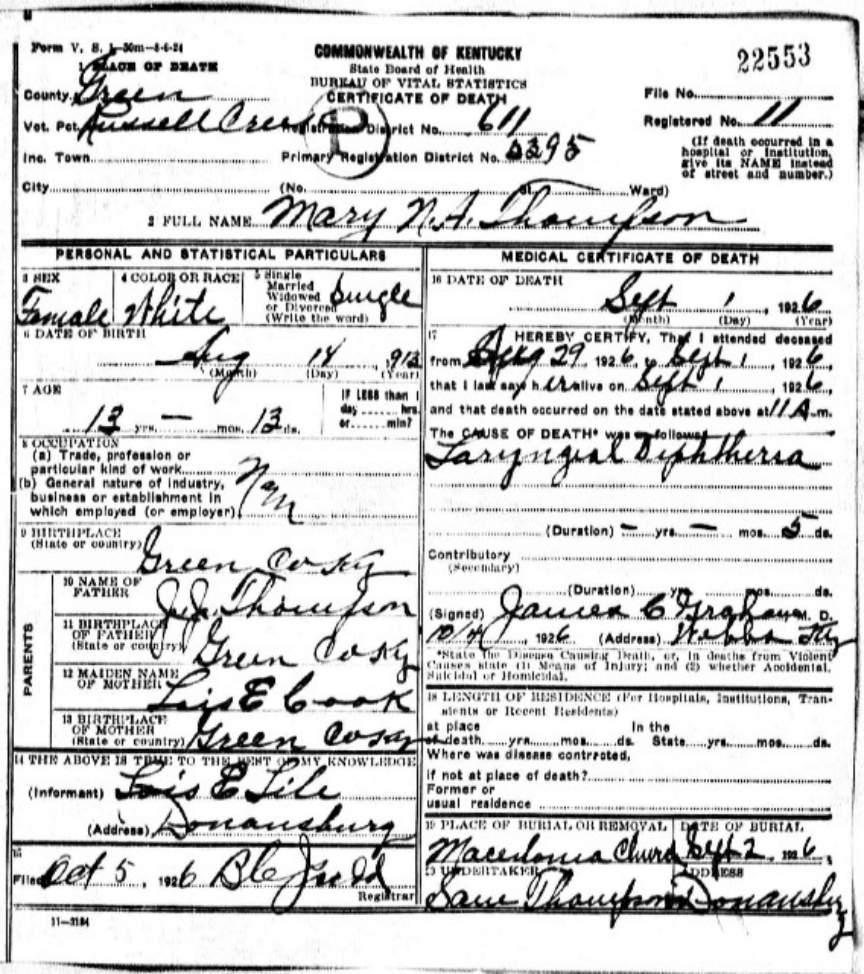 Form V. S. 1—50m—8-6-24
COMMONWEALTH OF KENTUCKY
State Board of Health
BUREAU OF VITAL STATISTICS
CERTIFICATE OF DEATH
22553
1 PLACE OF DEATH
County Green
File No.
Vot. Pct. Russell Creek Registration District No. 611
Registered No. 11
Inc. Town Primary Registration District No. 5395
(If death occurred in a
hospital or institution,
give its NAME instead
of street and number.)
City (No. St. Ward)
2 FULL NAME Mary N.A. Thompson
PERSONAL AND STATISTICAL PARTICULARS
3 SEX
Female
4 COLOR OR RACE
White
5 Single
Married
Widowed
or Divorced
(Write the word)
Single
6 DATE OF BIRTH
Aug 14, 913
(Month) (Day) (Year)
7 AGE
13 yrs. — mos. 13 ds.
IF LESS than 1
day hrs.
or min?
8 OCCUPATION
(a) Trade, profession or
particular kind of work
(b) General nature of industry,
business or establishment in
which employed (or employer)
9 BIRTHPLACE
(State or country) Green Co Ky
PARENTS
10 NAME OF
FATHER J.J. Thompson
11 BIRTHPLACE
OF FATHER
(State or country) Green Co Ky
12 MAIDEN NAME
OF MOTHER Lois E Cook
13 BIRTHPLACE
OF MOTHER
(State or country) Green Co Ky
14 THE ABOVE IS TRUE TO THE BEST OF MY KNOWLEDGE
(Informant) Lois E Lile
(Address) Donansburg
15
Filed Oct 5, 1926
Registrar
11—3184
MEDICAL CERTIFICATE OF DEATH
16 DATE OF DEATH
Sept 1, 1926
(Month) (Day) (Year)
17 HEREBY CERTIFY, That I attended deceased
from Aug 29 1926, to Sept 1, 1926
that I last saw her alive on Sept 1, 1926
and that death occurred on the date stated above at 11 A m.
The CAUSE OF DEATH* was as follows
Laryngial Diphtheria
(Duration) — yrs. — mos. 5 ds.
Contributory
(Secondary)
(Duration) yrs. mos. ds.
(Signed) James C Graham M. D.
10/4, 1926 (Address) Webbs Ky
*State the Disease Causing Death, or, in deaths from Violent
Causes state (1) Means of Injury; and (2) whether Accidental,
Suicidal or Homicidal.
18 LENGTH OF RESIDENCE (For Hospitals, Institutions, Tran-
sients or Recent Residents)
at place In the
of death yrs. mos. ds. State yrs. mos. ds.
Where was disease contracted,
if not at place of death?
Former or
usual residence
19 PLACE OF BURIAL OR REMOVAL
Macedonia Church
DATE OF BURIAL
Sept 2, 1926,
20 UNDERTAKER
Sam Thompson
ADDRESS
Donansburg